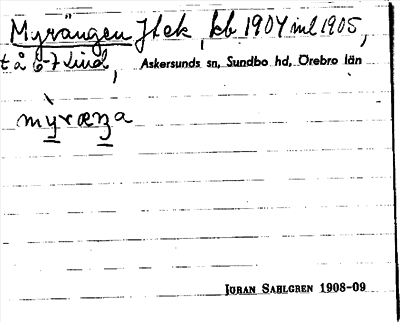 Myrängen Htek, kb 1904 inl 1905,
t å 6-7 Lind, Askersunds sn, Sundbo hd, Örebro län
myræŋa
JÖRAN SAHLGREN 1908-09